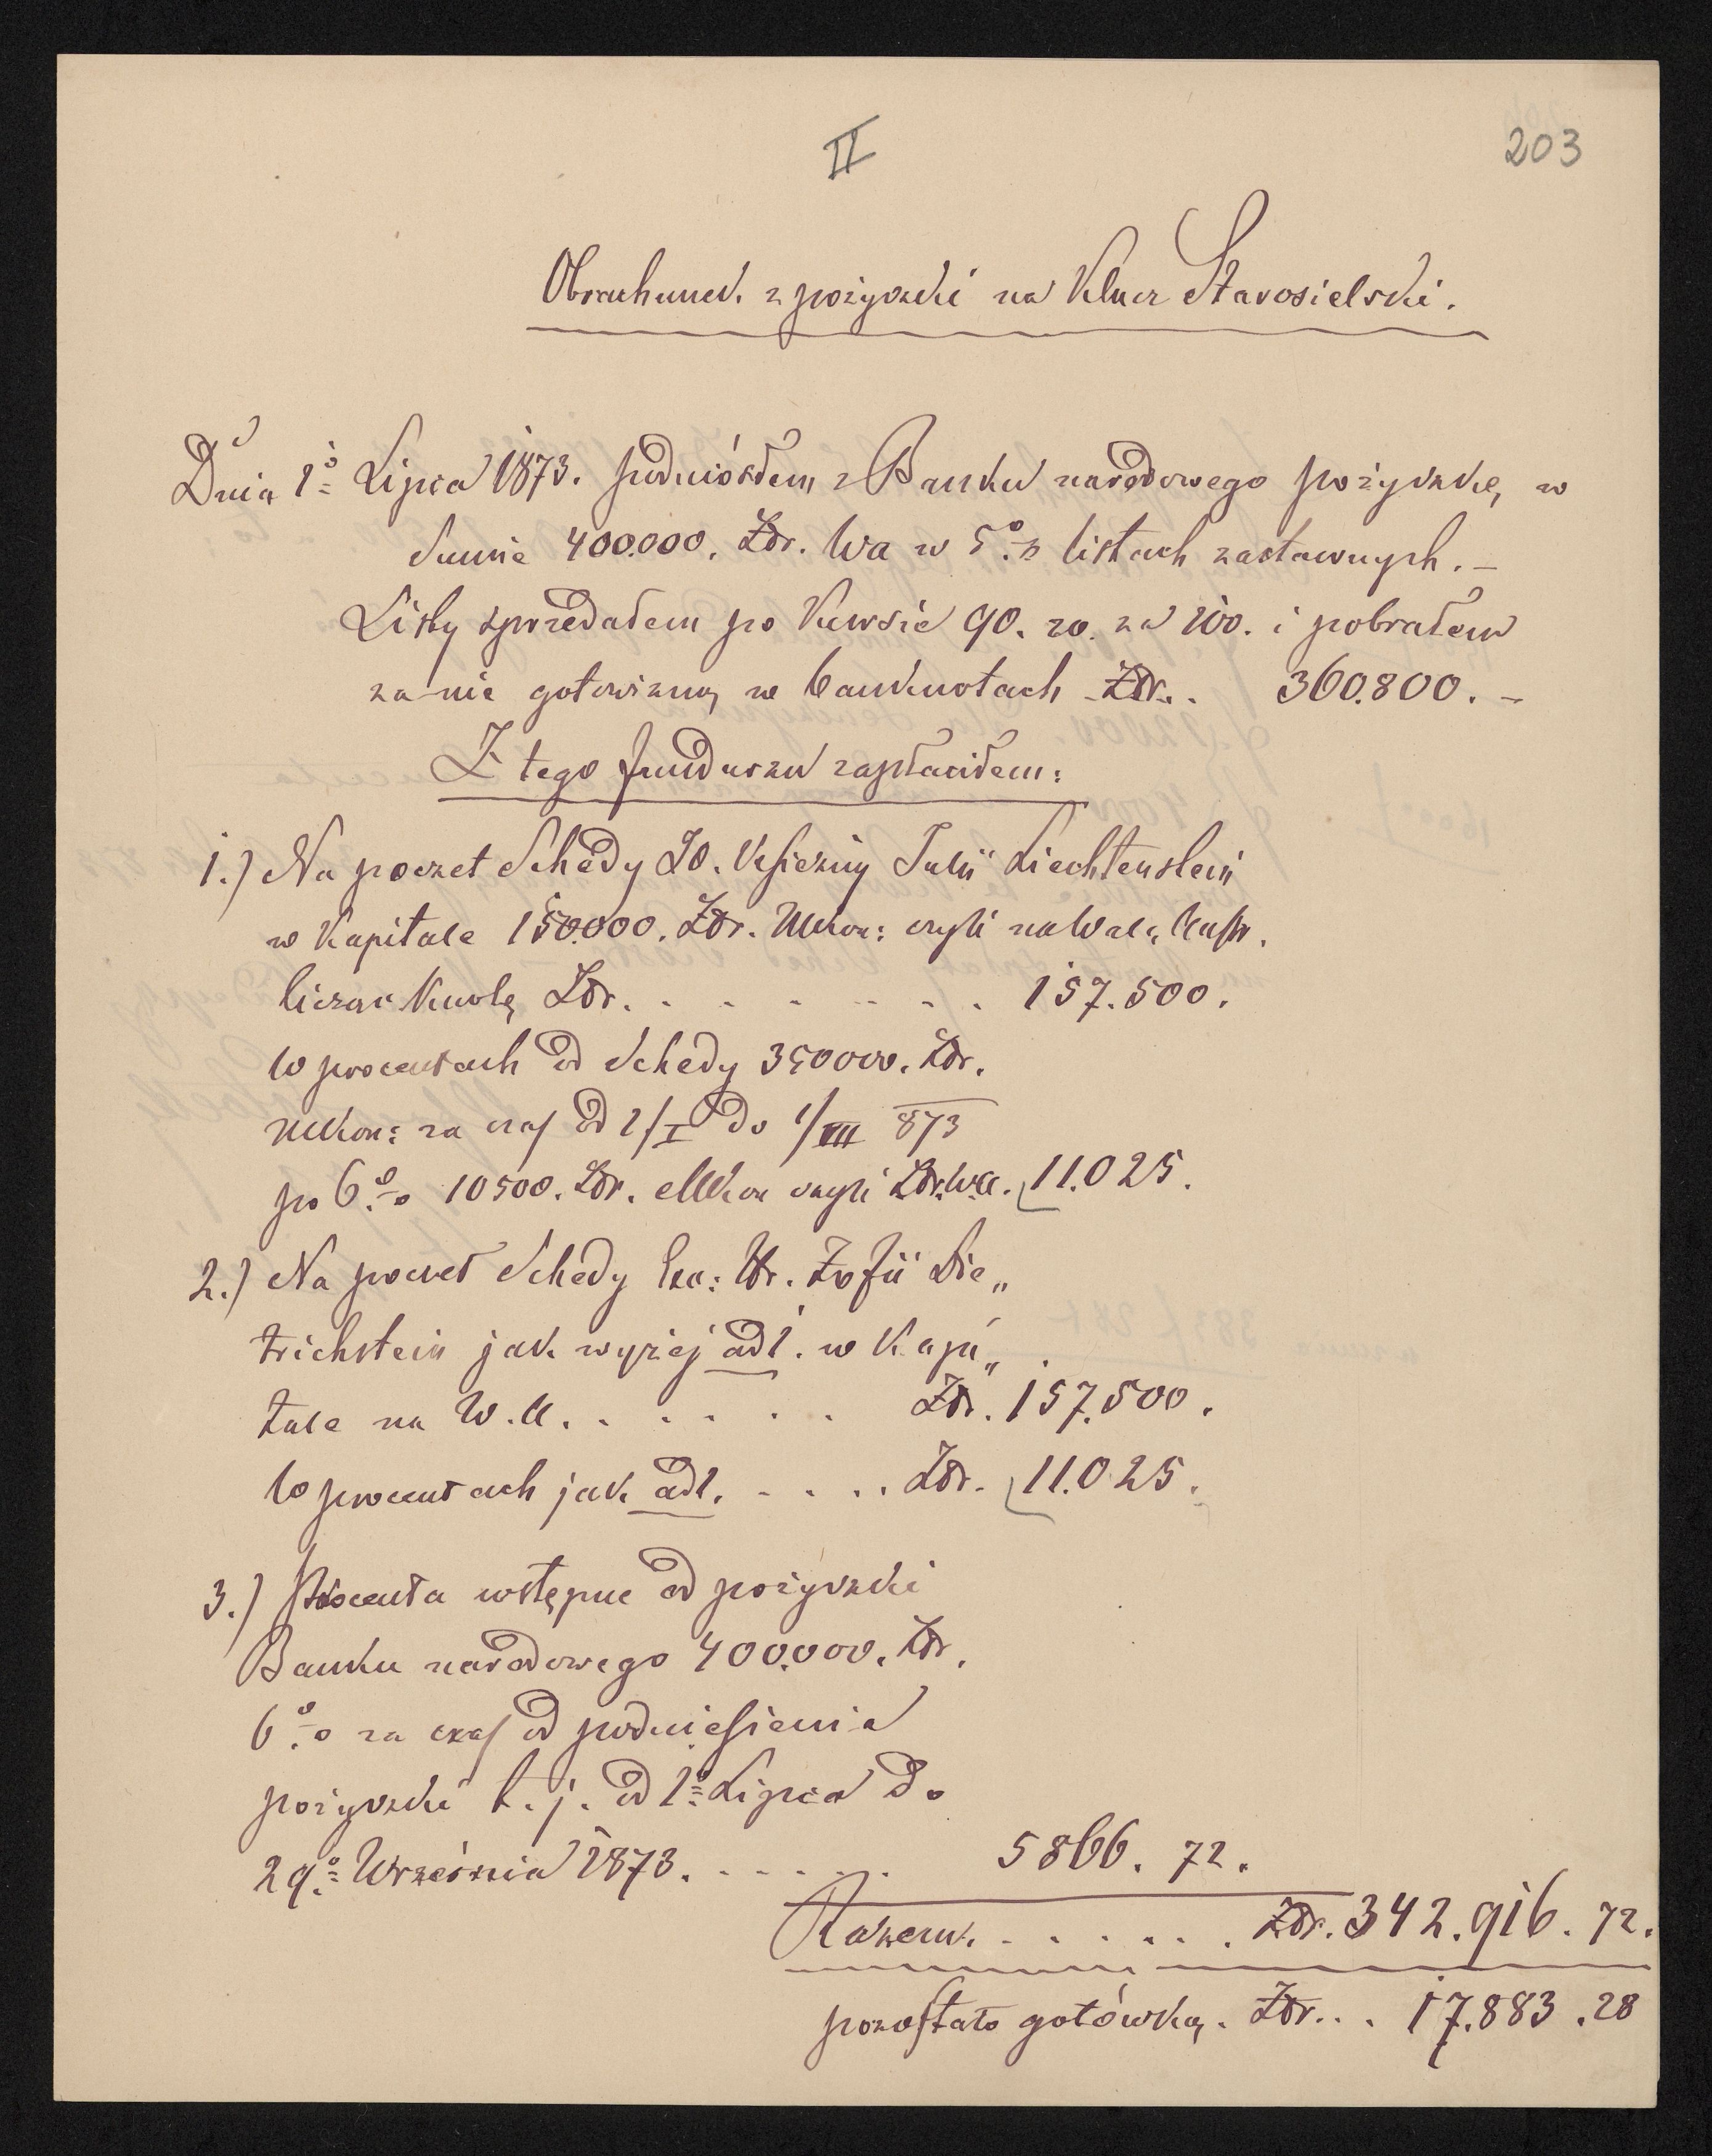 II
203
Obrachunek z pożyczki na Klucz Starosielski.
Dnia 1o Lipca 1873. podniósłem z Banku narodowego pożyczkę w
Sumie 400.000. Złr. Wa w 5% listach zastawnych. –
Listy sprzedałem po Kursie 90. 20. za 100. i pobrałem
za nie gotowizną w banknotach Złr. 360.800. –
Z tego funduszu zapłaciłem:
1.) Na poczet Schedy JO. Księżny Julii Liechtenstein
w Kapitale 150.000. Złr. Mkon: czyli na Wal. Austr.
licząc Kwotę Złr. . . . . . . . . 157.500.
W procentach od Schedy 350000. Złr.
Mkon: za czas od 1/I do 1/VII 873
po 6% 10500. Złr. Mkon czyli Złr. Wa. 11.025.
2.) Na poczet Schedy Exc: Hr. Zofii Die„
trichstein jak wyżej ad 1. w Kapi„
tale na W.A. . . . . . Złr. 157.500.
W procentach jak ad 1. . . . . Złr. 11.025.
3.) Procenta wstępne od pożyczki
Banku narodowego 400.000. Złr.
6% za czas od podniesienia
pożyczki t. j. od 1o Lipca do
29o Września 1873. . . . . . 5866. 72.
Razem. . . . . . . Złr. 342.916. 72.
pozostało gotówką. Złr. . . 17.883. 28